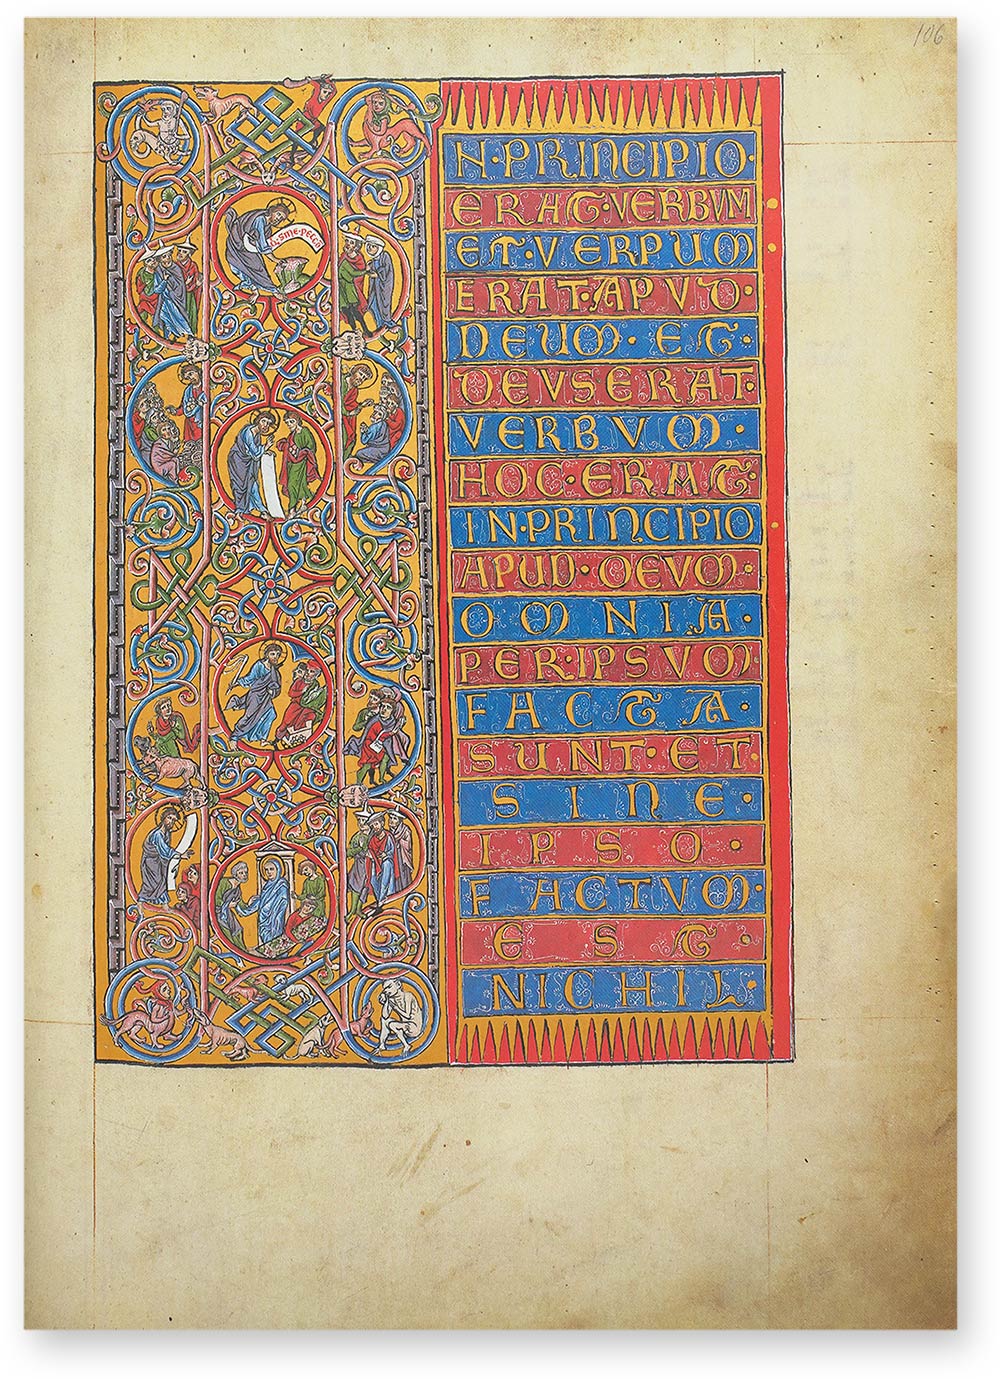 106
N·PRINCIPIO·
ERAT·VERBVM
ET·VERPUM
ERAT·APVD·
DEUM·ET·
DEVSERAT·
VERBVM·
HOC·ERAT·
IN·PRINCIPIO
APUD·DEVM·
OMNIA·
PER·IPSVM·
FACTA·
SUNT·ET
SINE·
IPSO·
FACTVM·
EST·
NICHIL·